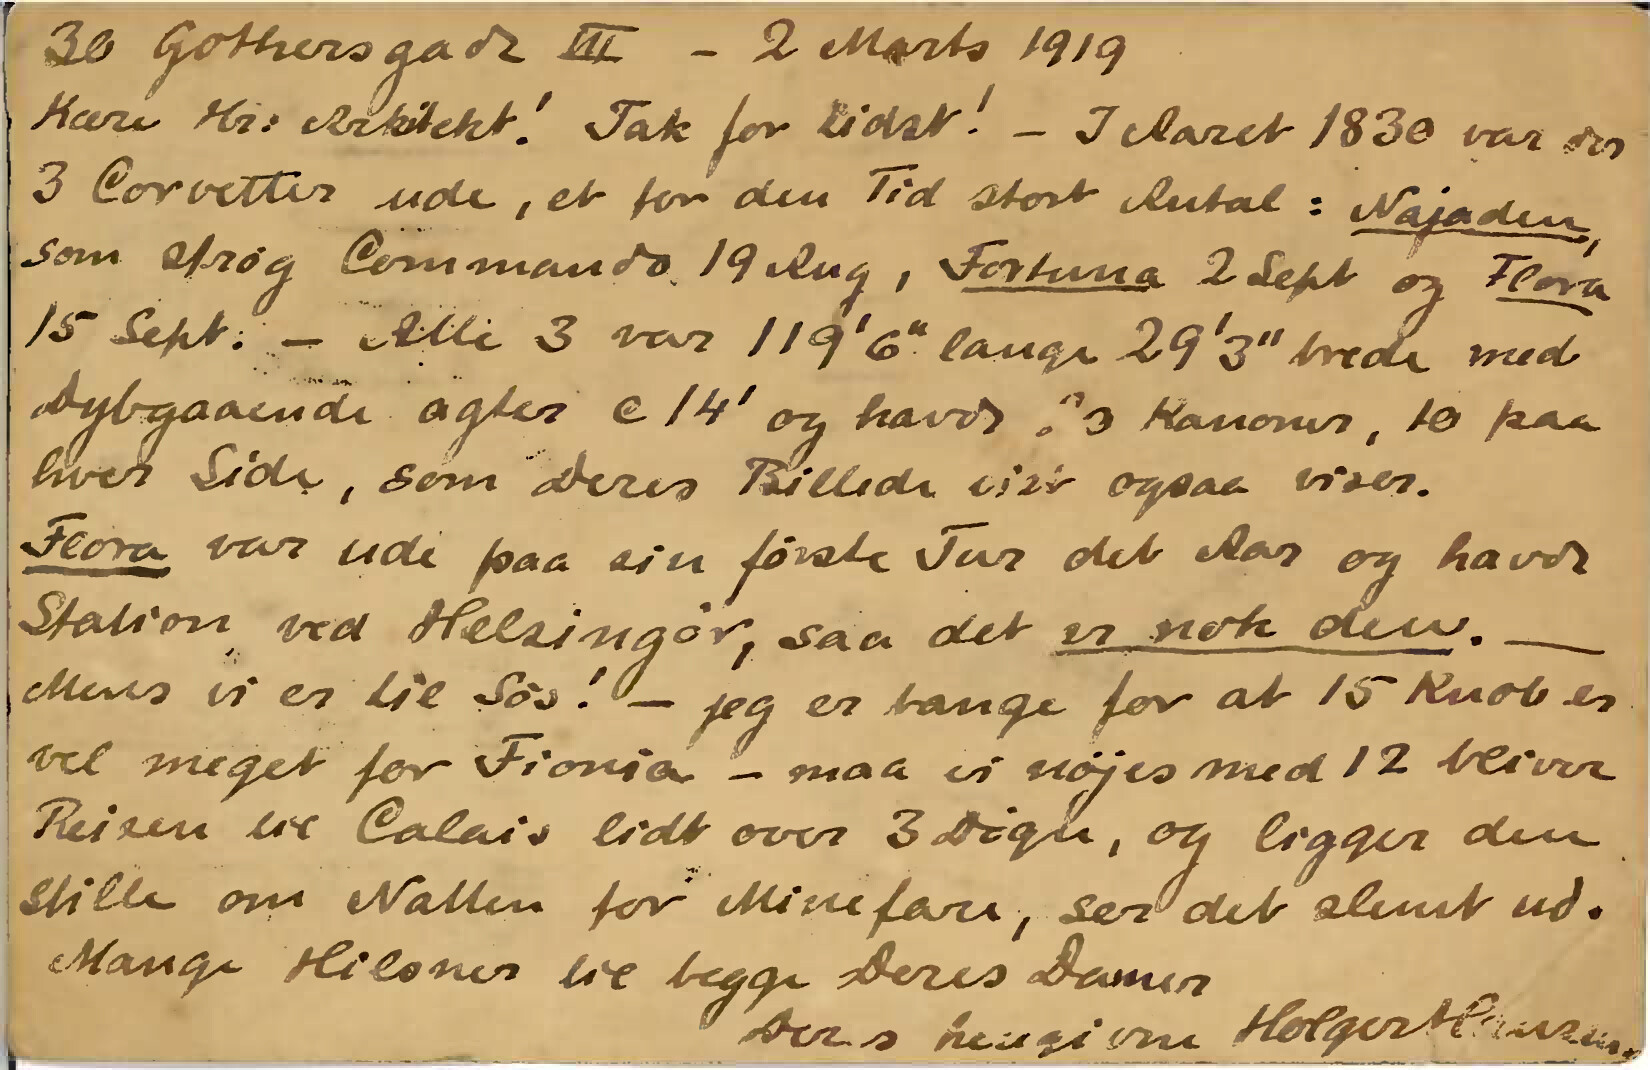 30 Gothersgade III - 2 Marts 1919
Kære Hr: Arkitekt! Tak for sidst! - I Aaret 1830 var der
3 Corvetter ude, et for den Tid stort Antal: Najaden,
som strøg Commando 19 Aug, Fortuna 2 Sept og Flora
15 Sept: - Alle 3 var 119' 6" lange 29' 3" brede med
Dybgaaende agter c 14' og havde Kanoner, 10 paa
hver Side, som Deres Billede vist ogsaa viser.
Flora var ude paa sin første Tur det Aar og havde
Station ved Helsingør, saa det er nok den. —
Mens vi er til Søs! - jeg er bange for at 15 Knob er
vel meget for Fionia - maa vi nøjes med 12 bliver
Reisen til Calais lidt over 3 Døgn, og ligger den
stille om Natten for Minefare, ser det slemt ud.
Mange Hilsner til begge Deres Damer
Deres hengivne Holger Hansen.